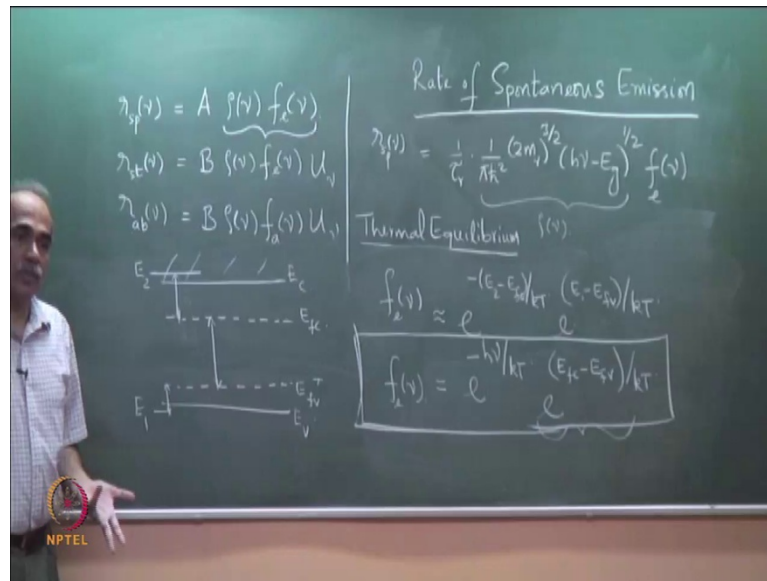 r_sp(ν) = A ρ(ν) f_e(ν)
r_st(ν) = B ρ(ν) f_e(ν) U_ν
r_ab(ν) = B ρ(ν) f_a(ν) U_ν
E_2
E_c
E_fc
E_fv
E_1
E_v
Rate of Spontaneous Emission
r_sp(ν) = 1/τ_r · 1/πħ² (2m_r)^3/2 (hν-E_g)^1/2 f_e(ν)
Thermal Equilibrium ρ(ν)
f_e(ν) ≈ e^-(E_2-E_fc)/kT e^(E_1-E_fv)/kT
f_e(ν) = e^-hν/kT e^(E_fc-E_fv)/kT
NPTEL